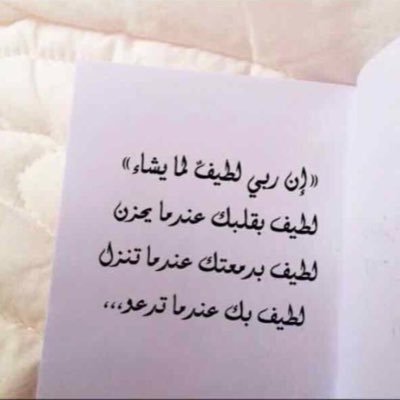 «إن ربي لطيفٌ لما يشاء»
لطيف بقلبك عندما يحزن
لطيف بدمعتك عندما تنزل
لطيف بك عندما تدعو،،،